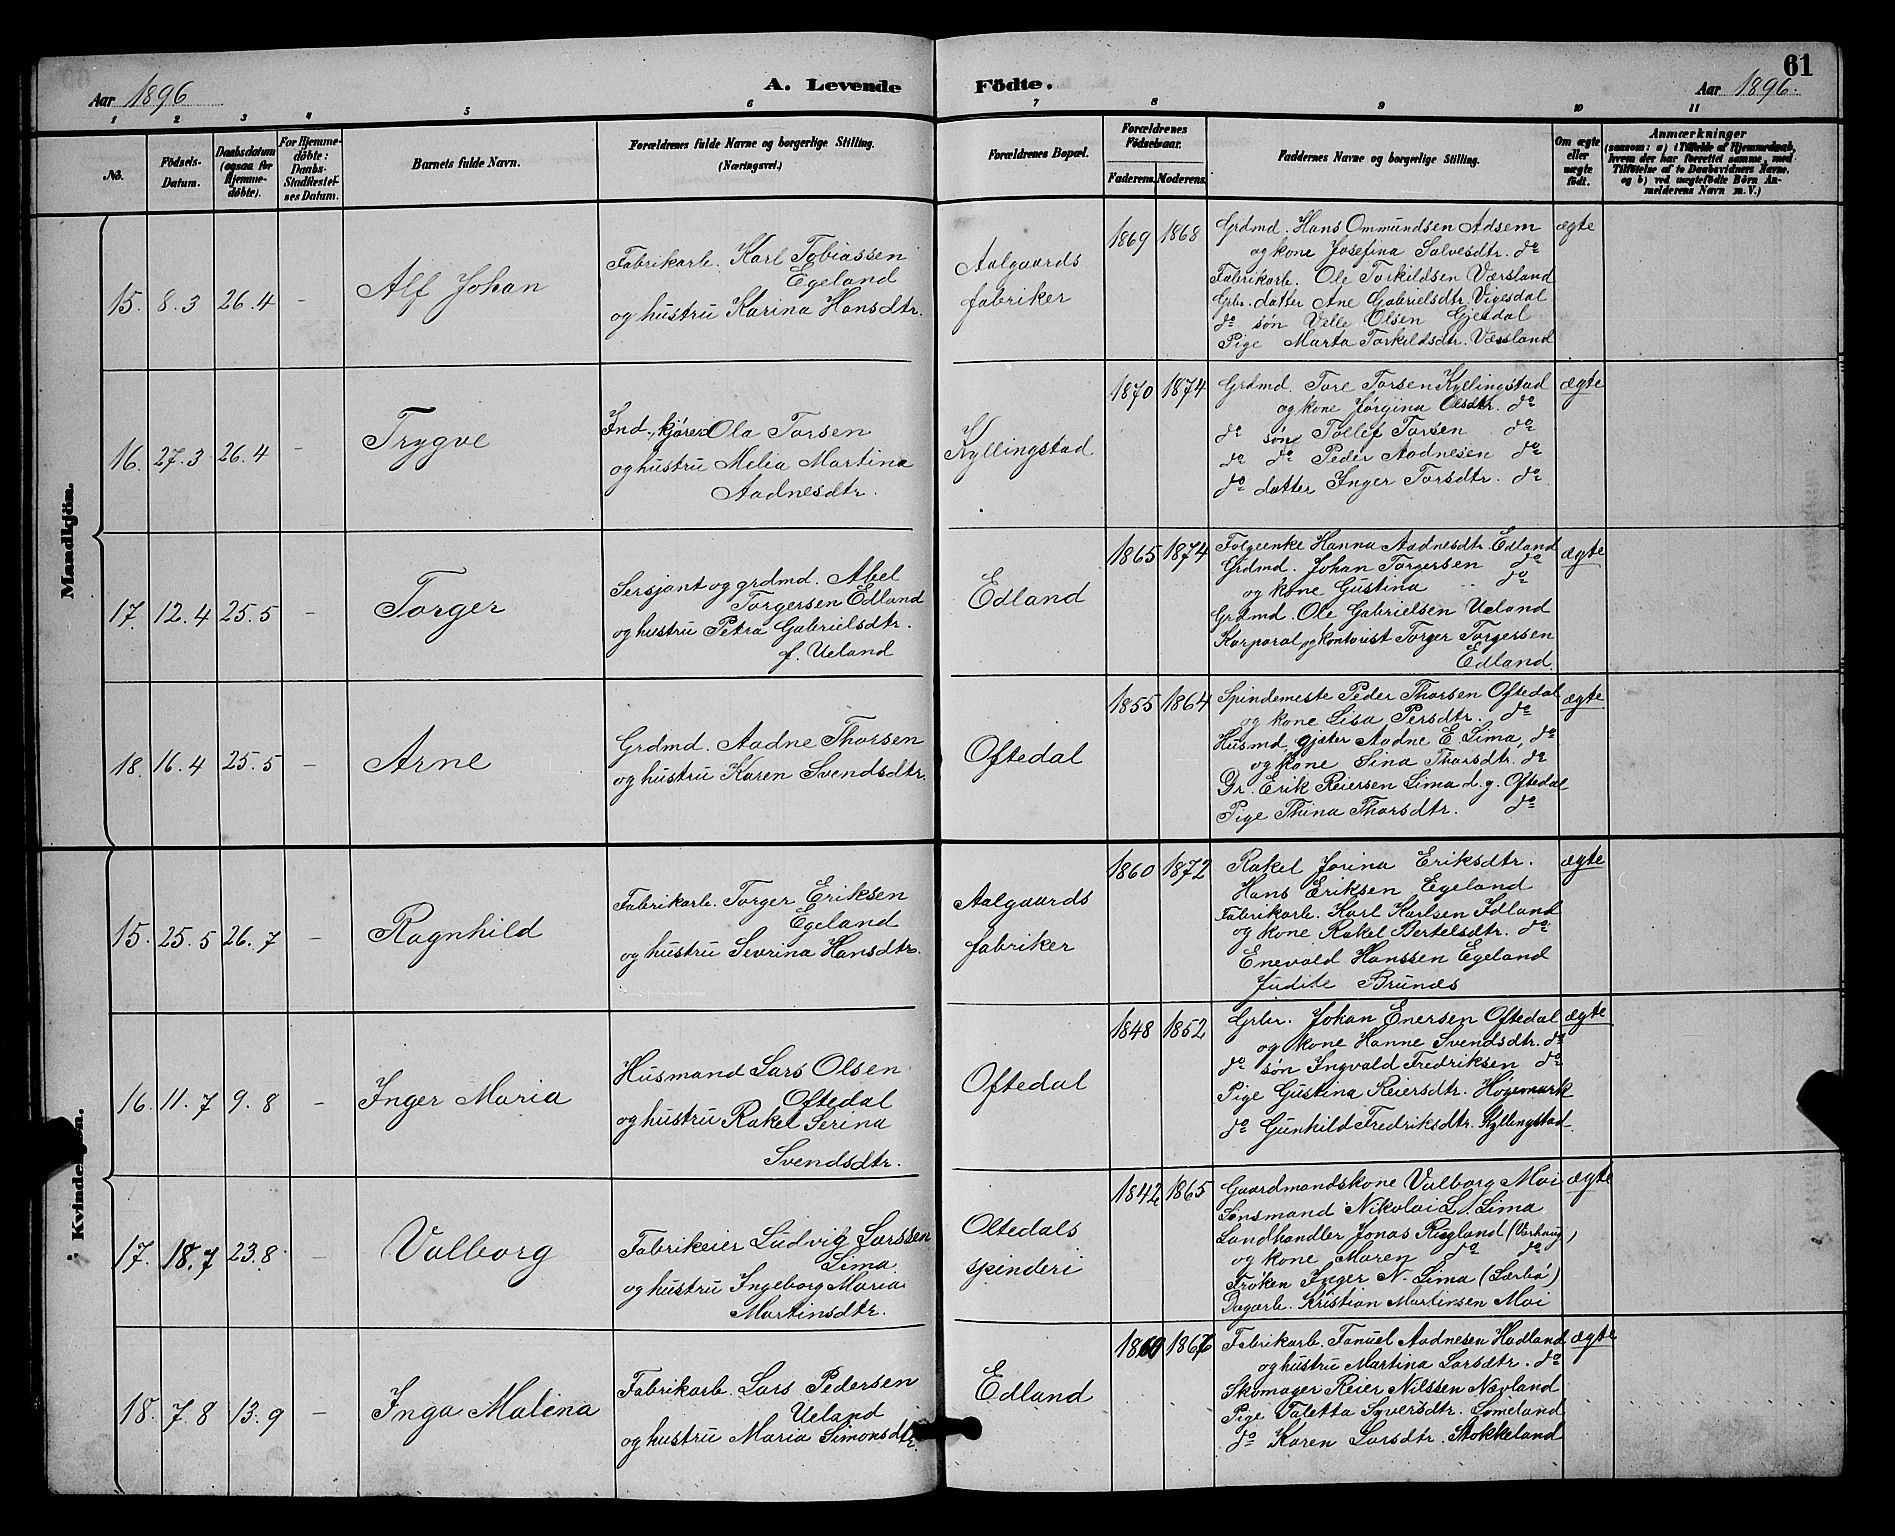 61
Aar 1896
A. Levende
Födte.
Aar 1896.
1 2 3 4 5 6 7 8 9 10 11
No.
Födsels-Datum.
Daabsdatum (ogsaa for Hjemme-döbte).
For Hjemme-döbte: Daabs-Stadfæstel-ses Datum.
Barnets fulde Navn.
Forældrenes fulde Navne og borgerlige Stilling.
(Næringsvei.)
Forældrenes Bopæl.
Forældrenes Födselsaar.
Faderens. Moderens.
Faddernes Navne og borgerlige Stilling.
Om ægte eller uægte födt.
Anmærkninger
(saasom: a) i Tilfælde af Hjemmedaab,
hvem der har forrettet samme, med
Tilföielse af to Daabsvidners Navne.
og b) ved uægtefödte Börn An-
melderens Navn m. V.)
Mandkjön.
15. 8.3 26.4 –
Alf Johan
Fabrikarb. Karl Tobiassen
Egeland
og hustru Karina Hansdtr.
Aalgaards
fabriker
1869 1868
Grdmd. Hans Ommundsen Adsem
og kone Josefina Salvesdtr. do
Fabrikarb. Ole TorkildsenVærsland
Grbr. datter Ane Gabrielsdtr. Vigesdal
do søn Velle Olsen Gjesdal
Pige Marta Torkildsdtr. Værsland
ægte
16. 27.3 26.4 –
Trygve
Ind., kjører Ola Torsen
og hustru Melia Martina
Aadnesdtr.
Kyllingstad
1870 1874
Grdmd. Tore Torsen Kyllingstad
og kone Jørgina Olsdtr. do
do søn Tollef Torsen do
do do Peder Aadnesen do
do datter Inger Torsdtr. do
ægte
17. 12.4 25.5 –
Torger
Sersjant og grdmd. Abel
Torgersen Edland
og hustru Petra Gabrielsdtr.
f. Ueland
Edland
1865 1874
Folgeenke Hanna Aadnesdtr. Edland
Grdmd. Johan Torgersen do
og kone Gustina do
Grdmd. Ole Gabrielsen Ueland
Korporal og kontorist Torger Torgersen
Edland.
ægte
18. 16.4 25.5 –
Arne
Grdmd. Aadne Thorsen
og hustru Karen Svendsdtr.
Oftedal
1855 1864
Spindemeste Peder Thorsen Oftedal
og kone Lisa Persdtr. do
Husmd, gjæter Aadne E. Lima, do
og kone Sina Thorsdtr. do
Gr. Erik Reiersen Lima d.y. Oftedal
Pige Thina Thorsdtr. do
ægte
Kvindekjön.
15. 25.5 26.7 –
Ragnhild
Fabrikarb. Torger Eriksen
Egeland
og hustru Sevrina Hansdtr.
Aalgaards
fabriker
1860 1872
Rakel Jorina Eriksdtr.
Hans Eriksen Egeland
Fabrikarb. Karl Karlsen Idland
og kone Rakel Bertelsdtr. do
Enevald Hanssen Egeland
Judite Brunæs
ægte
16. 11.7 9.8 –
Inger Maria
Husmand Lars Olsen
Oftedal
og hustru Rakel Serina
Svendsdtr.
Oftedal
1848 1852
Grbr. Johan Enersen Oftedal
og kone Hanne Svendsdtr. do
do søn Ingvald Fredriksen do
Pige Gustina Reiersdtr. Høgemark
do Gunhild Fredriksdtr. Kyllingstad.
ægte
17. 18.7 23.8 –
Valborg
Fabrikeier Ludvig Larssen
Lima
og hustru Ingeborg Maria
Martinsdtr.
Oltedals
spinderi
1842 1865
Gaardmandskone Valborg Moi
Lensmand Nikolai L. Lima
Landhandler Jonas Rugland (Varhaug)
og kone Maren do do
Frøken Inger N. Lima (Lærbø)
Dagarb. Kristian Martinsen Moi
ægte
18. 7.8 13.9 –
Inga Malena
Fabrikarb. Lars Pedersen
Ueland
og hustru Maria Simonsdtr.
Edland
1860 1866
Fabrikarb. Tanuel Aadnesen Hadland
og hustru Martina Larsdtr. do
Skomager Reier Nilssen Nævland
Pige Taletta Syversdtr. Lomeland
do Karen Larsdtr. Stokkeland
ægte